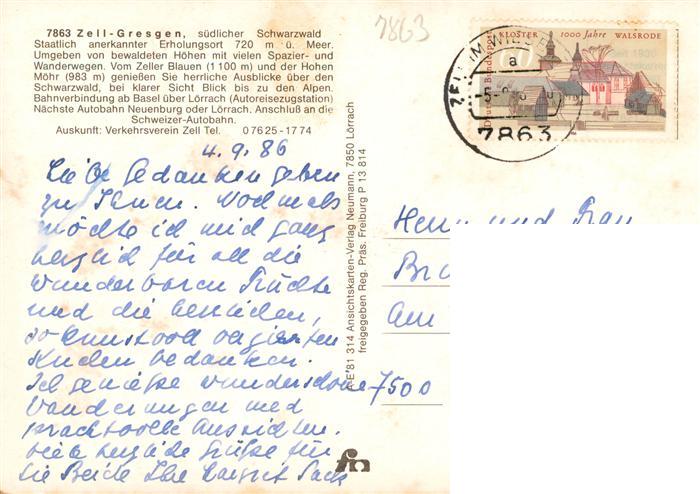 7863 Zell-Gresgen, südlicher Schwarzwald
Staatlich anerkannter Erholungsort 720 m ü. Meer.
Umgeben von bewaldeten Höhen mit vielen Spazier- und
Wanderwegen. Vom Zeller Blauen (1 100 m) und der Hohen
Möhr (983 m) genießen Sie herrliche Ausblicke über den
Schwarzwald, bei klarer Sicht Blick bis zu den Alpen.
Bahnverbindung ab Basel über Lörrach (Autoreisezugstation)
Nächste Autobahn Neuenburg oder Lörrach. Anschluß an die
Schweizer-Autobahn.
Auskunft: Verkehrsverein Zell Tel. 0 76 25 - 17 74
4.9.86
Liebe Gedanken gehen
zu Ihnen. Nochmals
möchte ich mich ganz
herzlich für all die
wunderbaren Früchte
und die
so kunstvoll
Kuchen bedanken.
Ich genieße wunderschöne
Wanderungen und
prachtvolle Aussichten.
Viele herzliche Grüße für
Sie Beide Ihre Margrit
A-E*81 314 Ansichtskarten-Verlag Neumann, 7850 Lörrach
freigegeben Reg. Präs. Freiburg P 13 814
7863
KLOSTER 1000 Jahre WALSRODE
Deutsche Bundespost
ZELL IM WIESENTAL
a
7863
Herrn und Frau
Am
7500